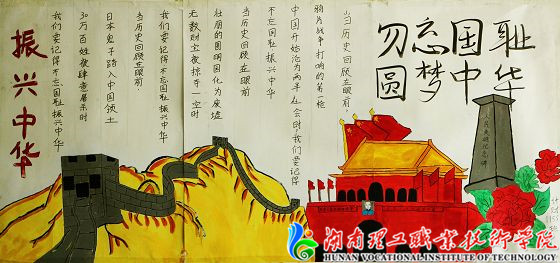 勿忘国耻
圆梦中华
当历史回顾在眼前，
鸦片战争打响的第一枪
中国开始沦为两半社会时，我们要记得
不忘国耻振兴中华
当历史回顾在眼前
壮丽的圆明园化为废墟
无数财宝被掠夺一空时
我们要记得不忘国耻振兴中华
当历史回顾在眼前
日本鬼子踏入中国领土
30万百姓被肆意屠杀时
我们要记得不忘国耻振兴中华
振兴中华
人民英雄纪念碑
湖南理工职业技术学院
HUNAN VOCATIONAL INSTITUTE OF TECHNOLOGY